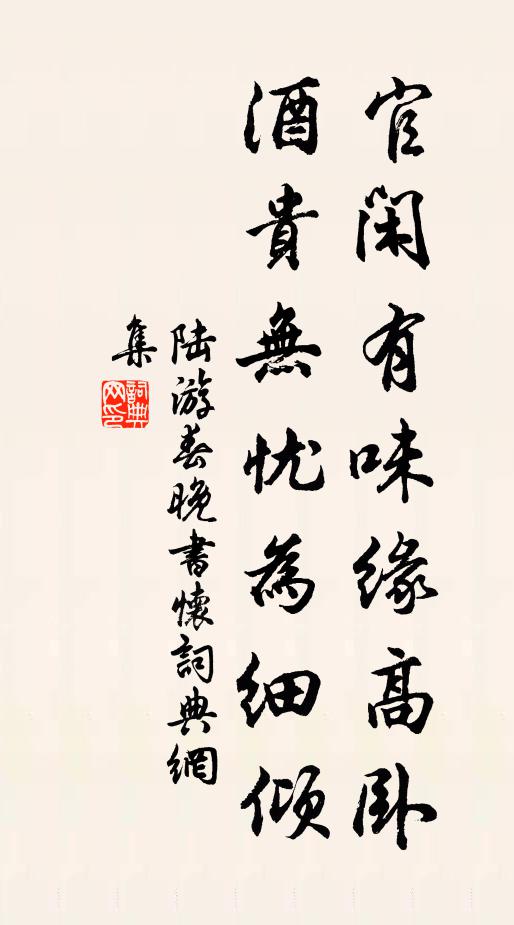 官閑有味緣高臥
酒貴無忧為細傾
陆游春晚書懷詞典網
集
詞典
网印